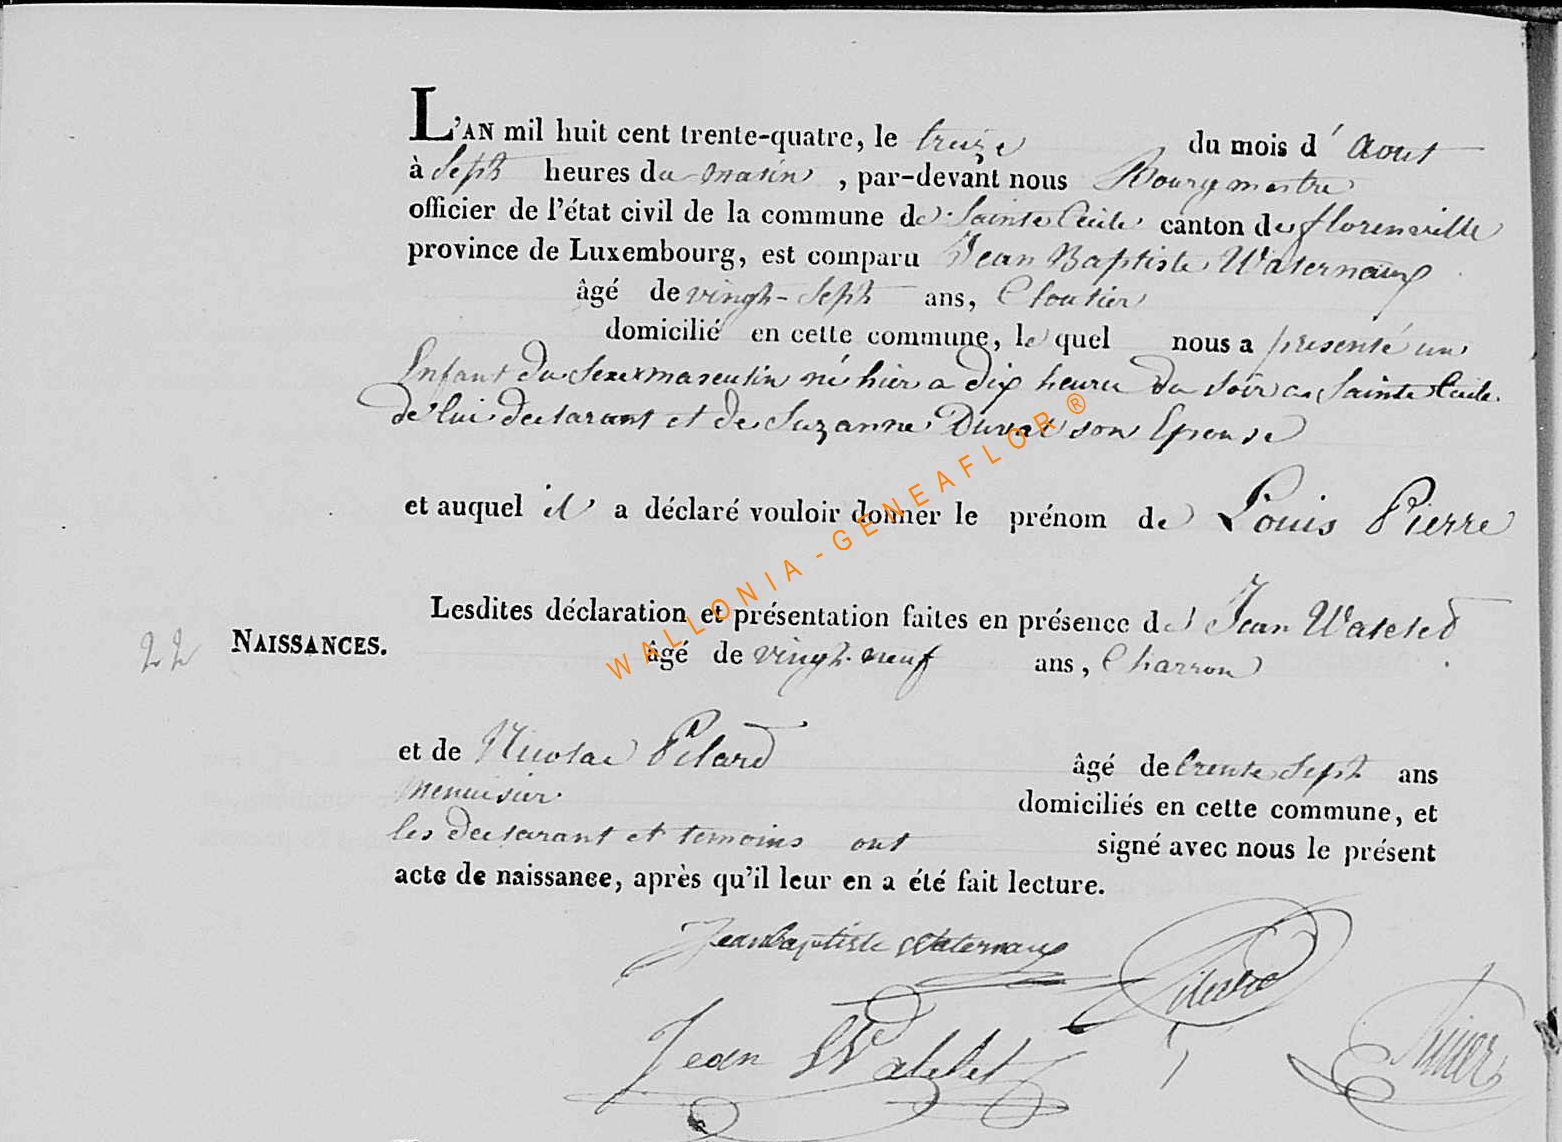 L'AN mil huit cent trente-quatre, le treize du mois d'Aout
à Sept heures du matin, par-devant nous Bourgmestre
officier de l'état civil de la commune de Sainte Cecile canton de florenville
province de Luxembourg, est comparu Jean Baptiste Waternaux
âgé de vingt-Sept ans, Cloutier
domicilié en cette commune, le quel nous a presenté un
Enfant du Sexe masculin né hier a dix heures du Soir a Sainte Cecile
de lui declarant et de Suzanne Duval son Epouse
et auquel il a déclaré vouloir donner le prénom de Louis Pierre
Lesdites déclaration et présentation faites en présence de Jean Watelet
22 NAISSANCES.
âgé de vingt-neuf ans, Charron
et de Nicolas Pilard âgé de trente Sept ans
menuisier domiciliés en cette commune, et
les declarant et temoins ont signé avec nous le présent
acte de naissance, après qu'il leur en a été fait lecture.
Jeanbaptiste Waternaux
Jean Watelet
WALLONIA-GENEAFLOR ®